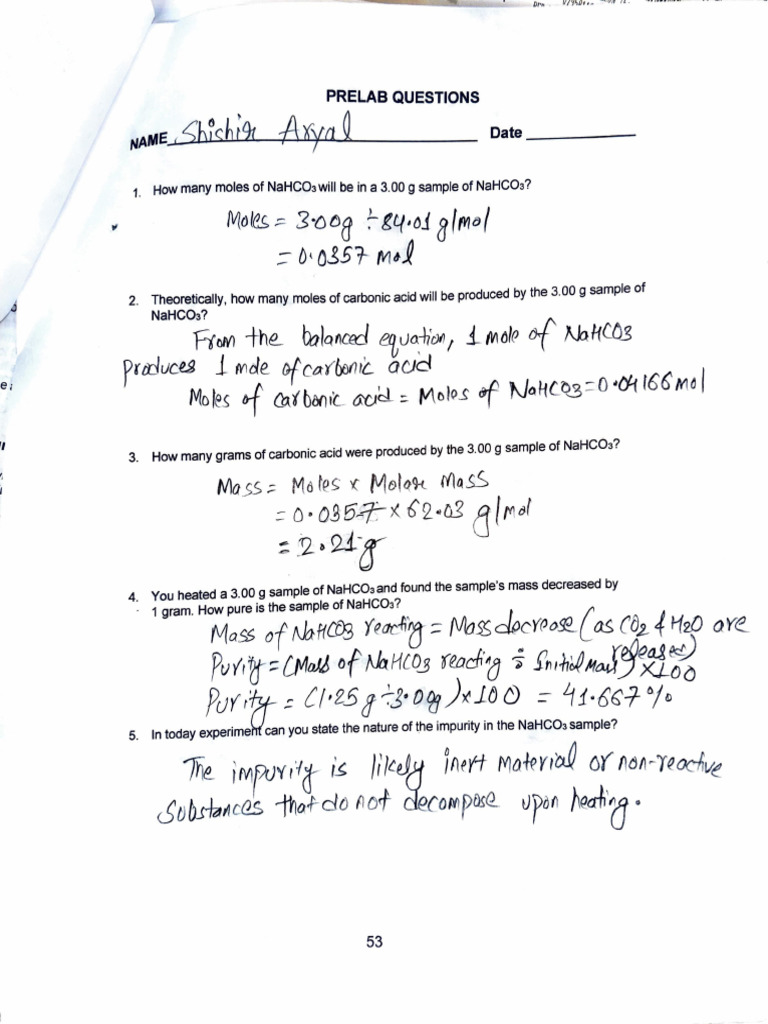 PRELAB QUESTIONS
NAME Shishir Aryal Date
1. How many moles of NaHCO₃ will be in a 3.00 g sample of NaHCO₃?
Moles = 3.00g ÷ 84.01 g/mol
= 0.0357 mol
2. Theoretically, how many moles of carbonic acid will be produced by the 3.00 g sample of
NaHCO₃?
From the balanced equation, 1 mole of NaHCO3
Produces 1 mole of carbonic acid
Moles of carbonic acid = Moles of NaHCO3 = 0.04166 mol
3. How many grams of carbonic acid were produced by the 3.00 g sample of NaHCO₃?
Mass = Moles × Molar Mass
= 0.0357 × 62.03 g/mol
= 2.21 g
4. You heated a 3.00 g sample of NaHCO₃ and found the sample's mass decreased by
1 gram. How pure is the sample of NaHCO₃?
Mass of NaHCO3 reacting = Mass decrease (as CO2 & H2O are
released)
Purity = (Mass of NaHCO3 reacting ÷ Initial Mass) ×100
Purity = (1.25 g ÷ 3.00g) × 100 = 41.667 %
5. In today experiment can you state the nature of the impurity in the NaHCO₃ sample?
The impurity is likely inert material or non-reactive
Substances that do not decompose upon heating.
53